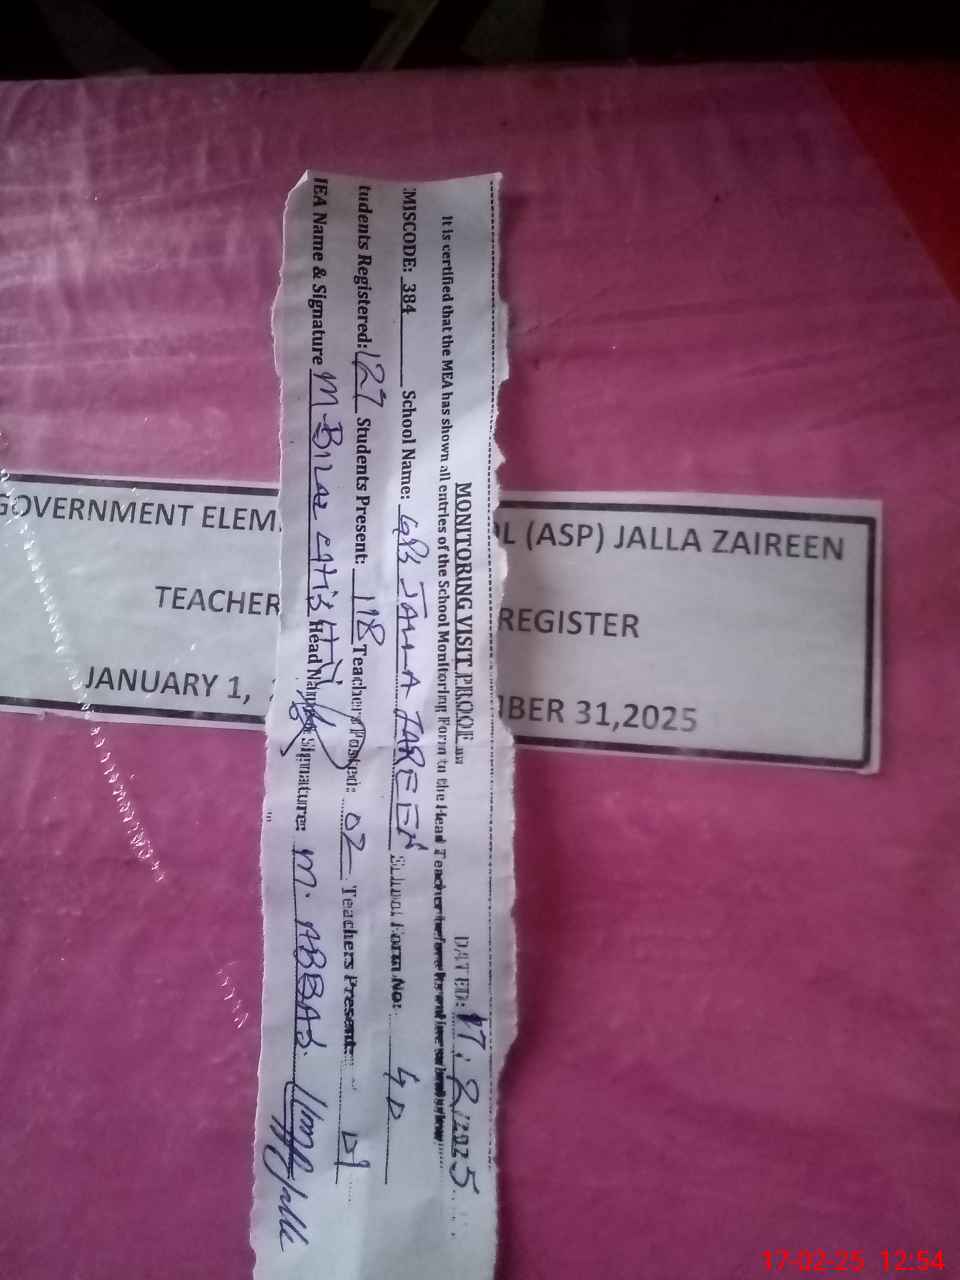 MONITORING VISIT PROOF DATED: 17.2.2025
It is certified that the MEA has shown all entries of the School Monitoring Form to the Head Teacher before its online submission
EMISCODE: 384 School Name: JALLA ZAREEN School Form No: 40
tudents Registered: 127 Students Present: 118 Teachers Posted: 02 Teachers Present: 01
MEA Name & Signature M. Bilal Head Name & Signature: M. ABBAS
GOVERNMENT ELEM OL (ASP) JALLA ZAIREEN
TEACHER REGISTER
JANUARY 1, MBER 31,2025
17-02-25 12:54